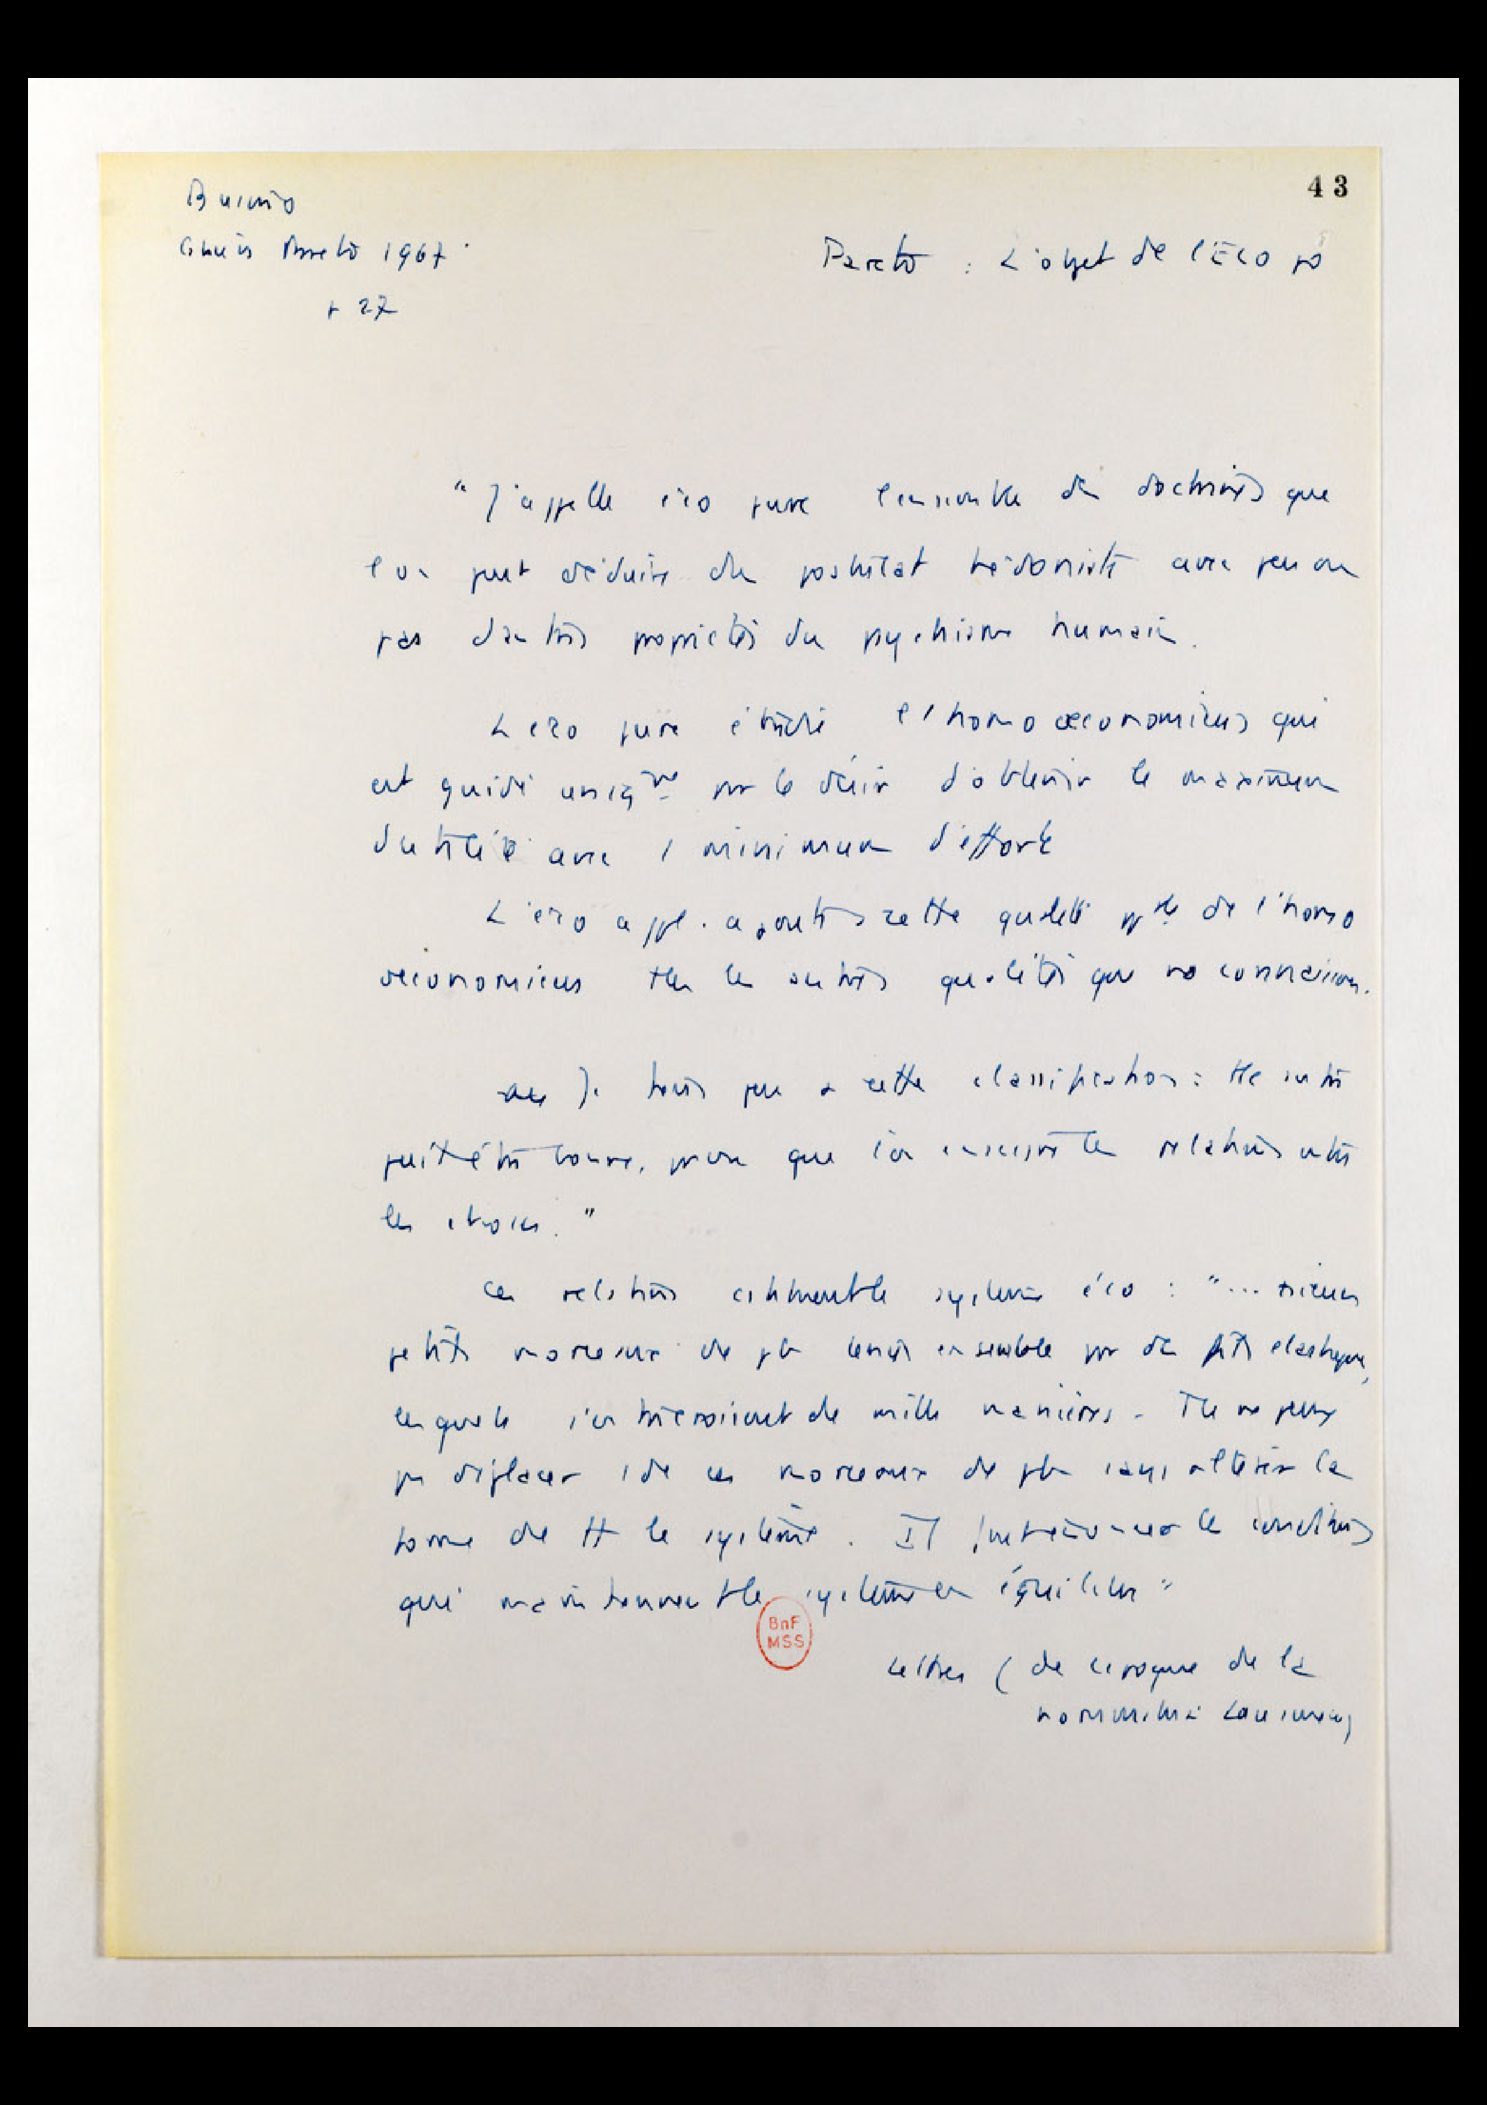 43
Busino
Pareto 1967
p 27
Pareto : L'objet de l'Eco po
"J'appelle éco pure l'ensemble des doctrines que
l'on peut déduire du postulat hédoniste avec peu ou
pas d'autres propriétés du psychisme humain.
L'éco pure étudie l'homo oeconomicus qui
est guidé uniqmt par le désir d'obtenir le maximum
d'utilité avec 1 minimum d'efforts
L'éco appl. ajoute à cette qualité ppale de l'homo
oeconomicus ttes les autres qualités que ns connaissons.
Je tiens peu à cette classification : tte autre
peut être bonne, pourvu que l'on conserve les relations entre
les choses."
Ces relations constituent le système éco : "...
petits morceaux de pb tenus ensemble par des fils élastiques,
lesquels s'entrecroisent de mille manières. Tu ne peux
pas déplacer 1 de ces morceaux de pb sans altérer la
forme de tt le système. Il faut trouver les conditions
qui maintiennent le système en équilibre"
BnF
MSS
Lettres (de l'époque de la
nomination Lausanne)